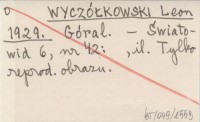 o WYCZÓŁKOWSKI Leon
1929. Góral. – Świato-
wid 6, nr 42: , il. Tylko
reprod. obrazu.